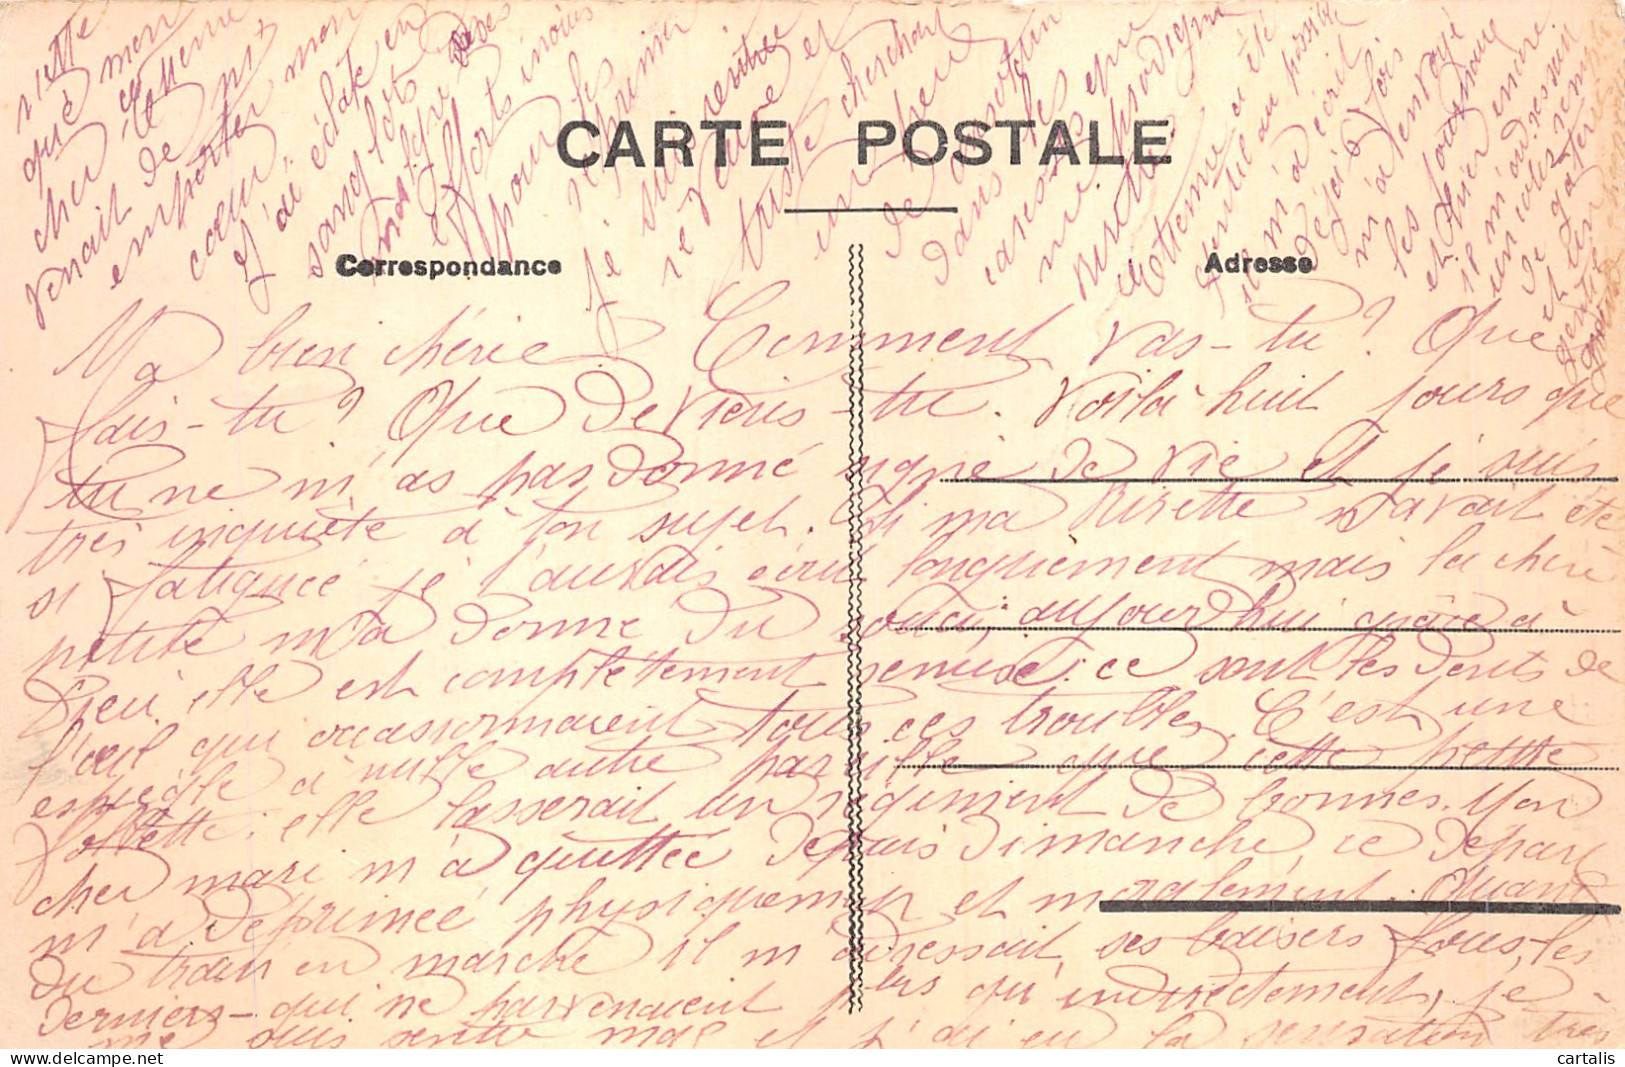 CARTE POSTALE
Correspondance
Adresse
Ma bien chérie. Comment vas-tu? Que
fais-tu? Que deviens-tu. Voilà huit jours que
tu ne m'as pas donné signe de vie et je suis
très inquiète à ton sujet. Si ma Risette n'avait été
si fatiguée je t'aurais écrit longuement mais la chère
petite m'a donné du souci, aujourd'hui grâce à
Dieu elle est complètement remise: ce sont les dents de
l'œil qui occasionnaient tous ces troubles. C'est une
espiègle à nulle autre pareille que cette petite
elle lasserait un régiment de bonnes. Mon
cher mari m'a quittée depuis Dimanche, ce départ
m'a déprimée physiquement et moralement. Quand
du train en marche il m'adressait ses baisers fous, les
derniers - qui ne parvenaient plus qu'indirectement, je
me suis sentie mal et j'ai eu la sensation très
nette
que mon
cher
venait de
emporter mon
cœur
et j'ai éclaté en
sanglots
malgré des
efforts inouis
pour les
réprimer
Je suis rentrée
seule et
triste cherchant
un peu
de consolation
dans les
caresses que
me prodigue
Risette
Etienne a été
gentil au possible
il m'a écrit
déjà 2 fois
m'a envoyé
les journaux
et hier encore
il m'adressait
un colis rempli
de gâteries
et un
gentil chapeau
cartalis